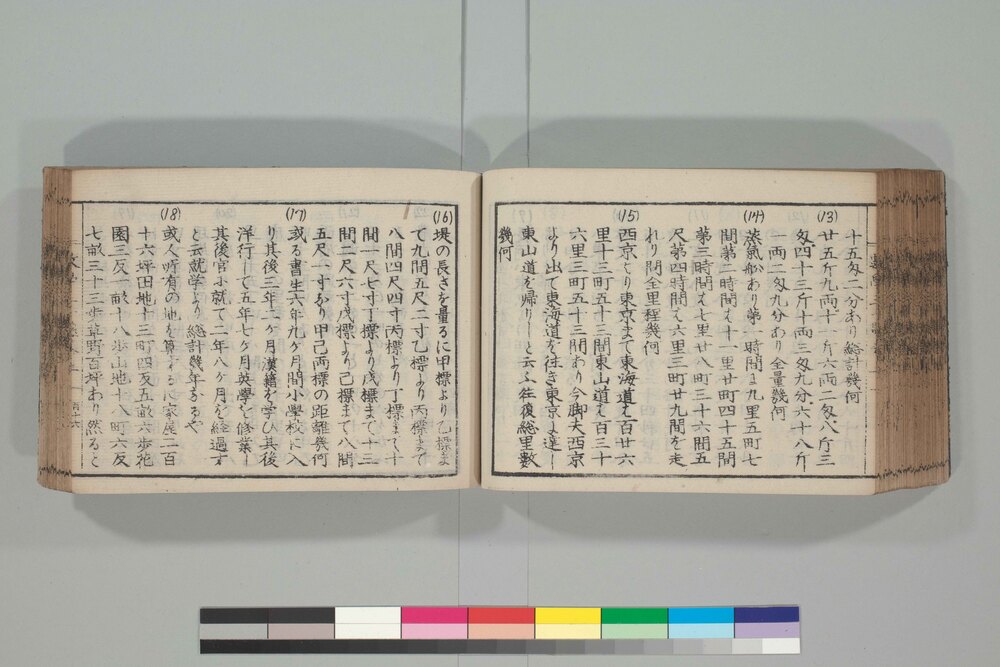 十五匁二分あり総計幾何
(13)
廿五斤九両十一斤六両二匁八斤三
匁四十三斤十両三匁九分六十八斤
一両二匁九分あり全量幾何
(14)
蒸氣船あり第一時間は九里五町七
間第二時間は十一里廿町四十五間
第三時間は七里廿八町三十六間五
尺第四時間は六里三町廿九間を走
れり問全里程幾何
(15)
西京より東京まて東海道は百廿六
里十三町五十三間東山道は百三十
六里三町五十三間あり今脚夫西京
より出て東海道を往き東京に達し
東山道を帰りしと云ふ往復総里数
幾何
(16)
堤の長さを量るに甲標より乙標ま
て九間五尺二寸乙標より丙標まて
八間四尺四寸丙標より丁標まて十
間一尺七寸丁標より戊標まて十三
間二尺六寸戊標より己標まて八間
五尺一寸あり甲己両標の距離幾何
(17)
或る書生六年九ケ月間小學校に入
り其後三年二ケ月漢籍を学ひ其後
洋行して五年七ケ月英學を修業し
其後官に就て二年八ケ月を経過す
と云就学より総計幾年なるや
(18)
或人所有の地を算するに家屋二百
十六坪田地十三町四反五畝六歩花
園三反一畝十八歩山地十八町六反
七畝三十三歩草野百坪あり然ると